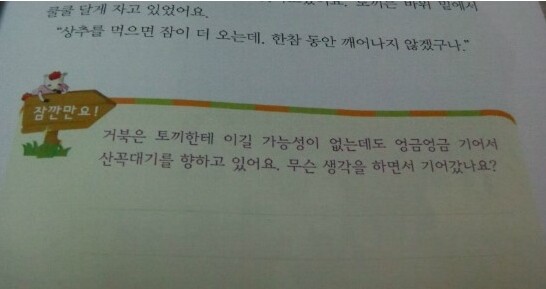 쿨쿨 달게 자고 있었어요. 토끼는 바위 밑에서
"상추를 먹으면 잠이 더 오는데. 한참 동안 깨어나지 않겠구나."
잠깐만요!
거북은 토끼한테 이길 가능성이 없는데도 엉금엉금 기어서
산꼭대기를 향하고 있어요. 무슨 생각을 하면서 기어갔나요?